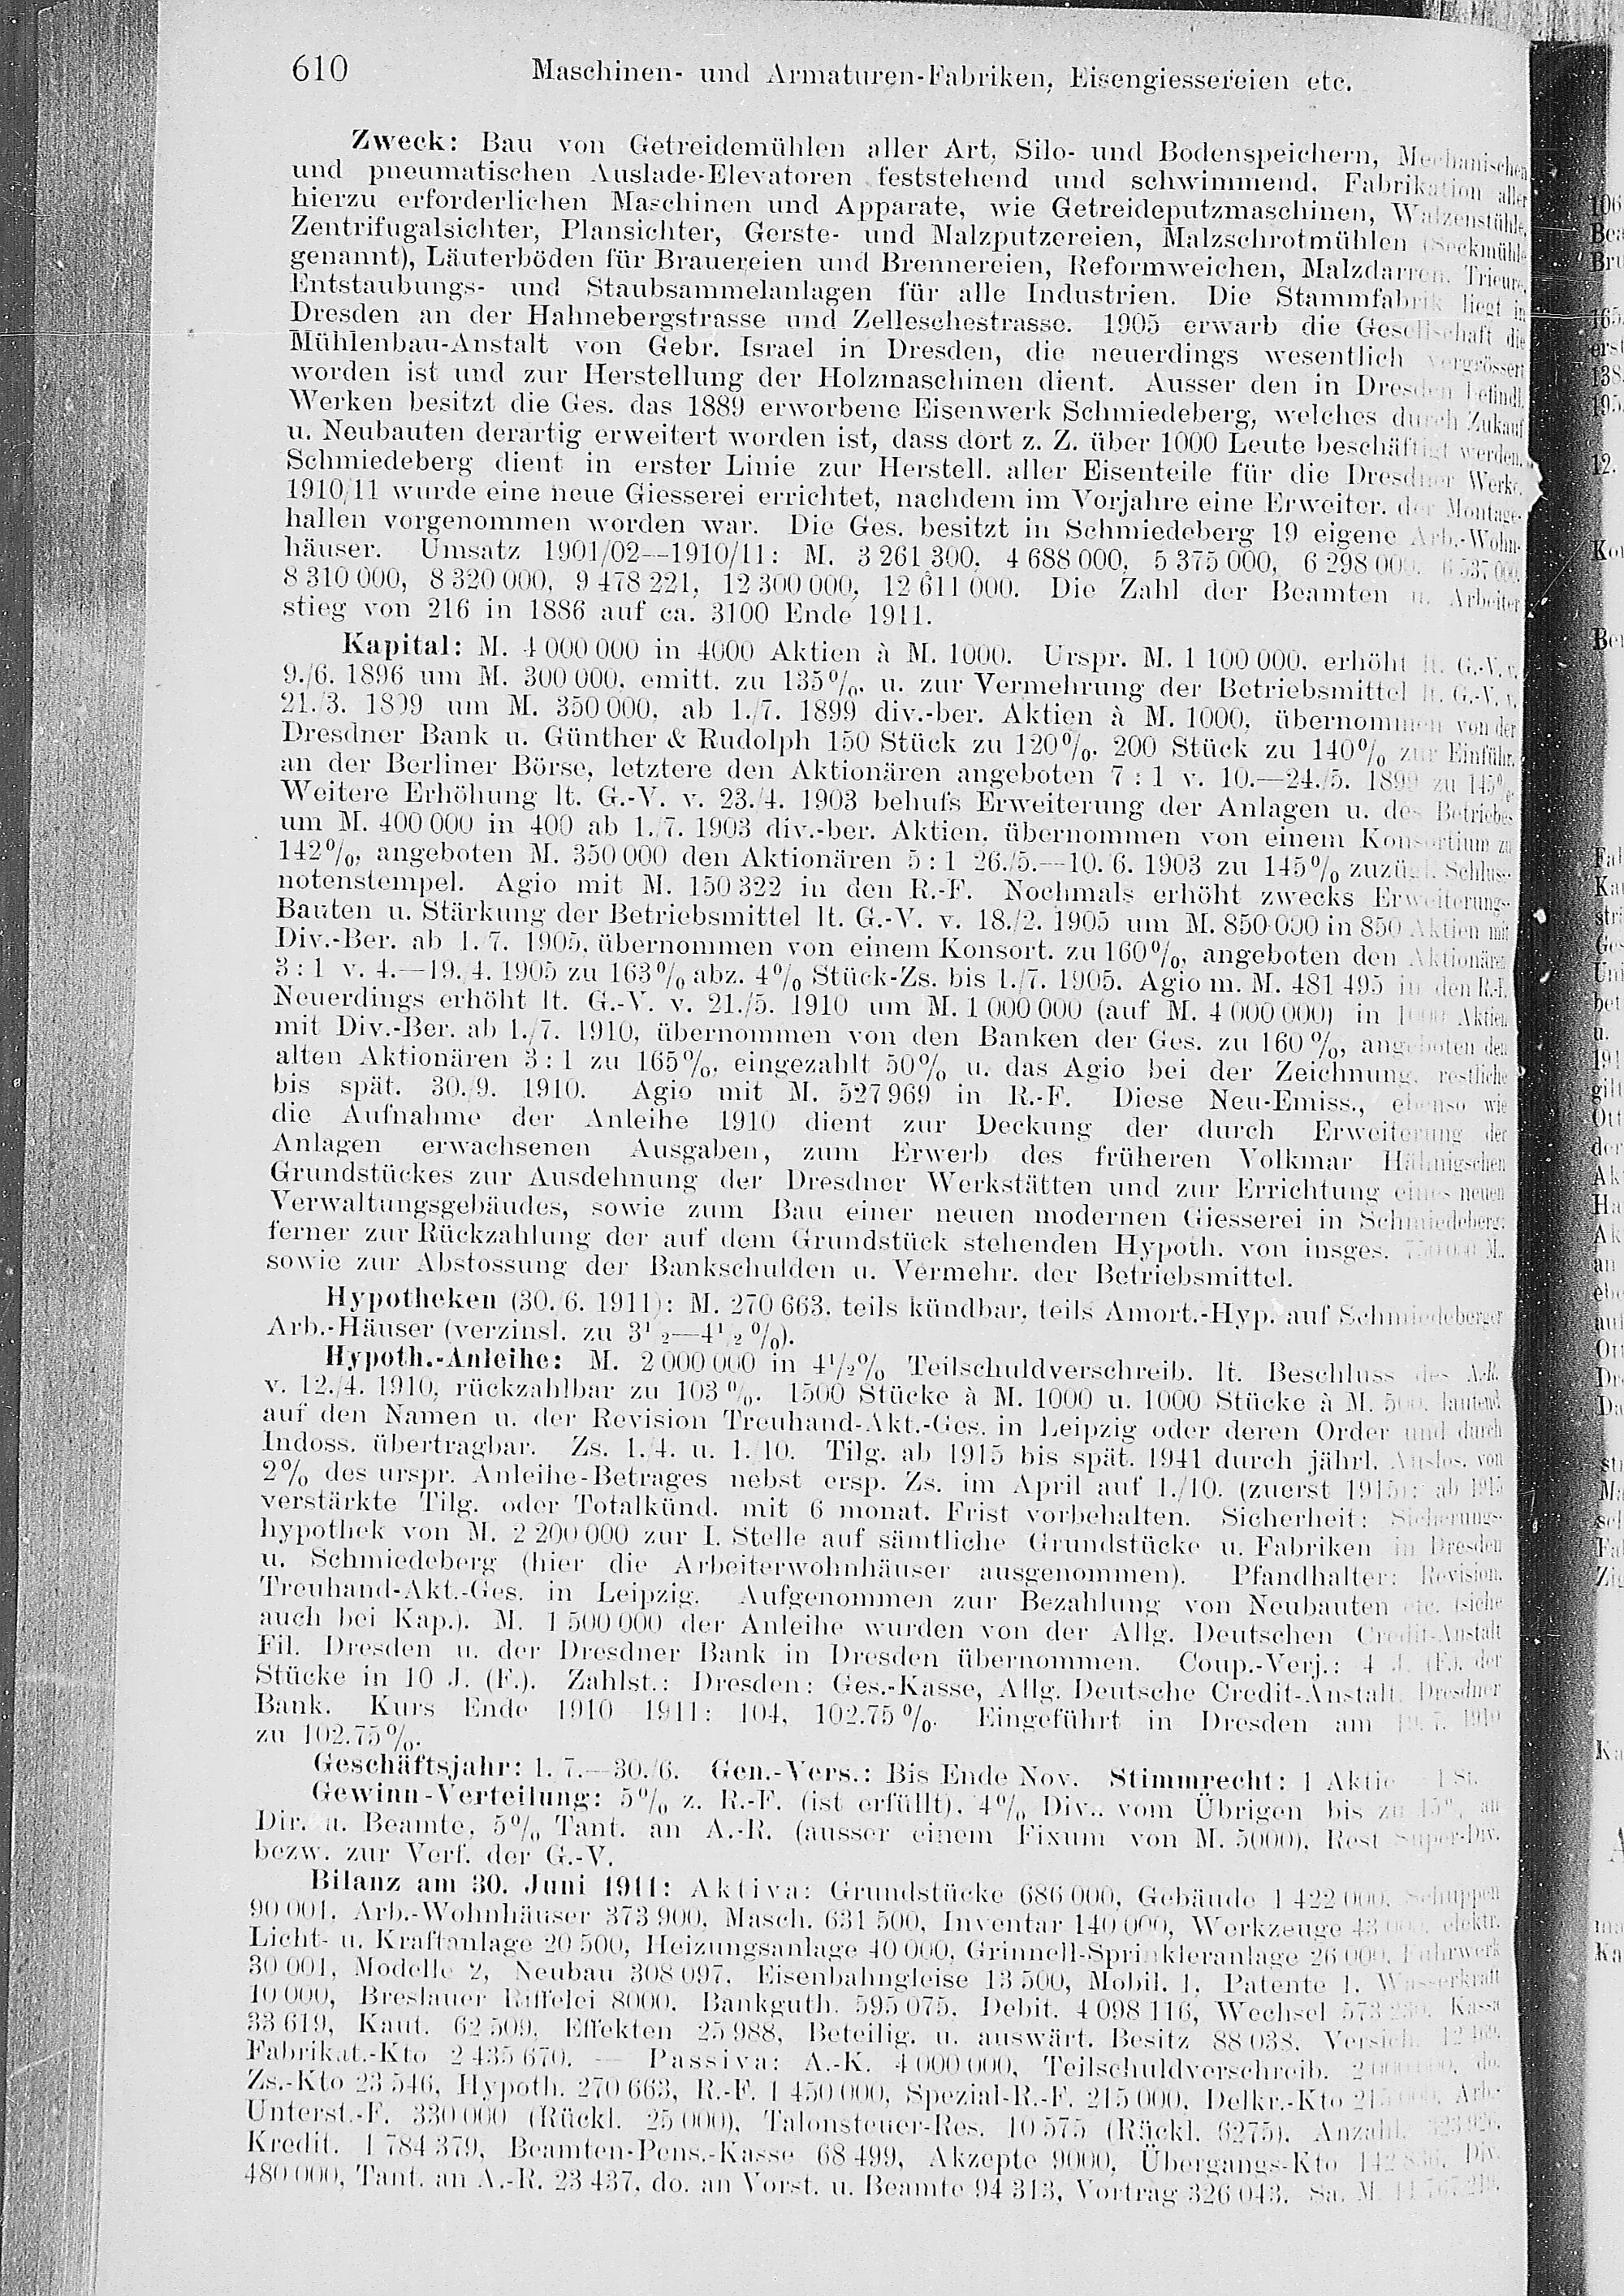 610 Maschinen- und Armaturen-Fabriken, Eisengiessereien etc.
Zweck: Bau von Getreidemühlen aller Art, Silo- und Bodenspeichern, Mechanischen
und pneumatischen Auslade-Elevatoren feststehend und schwimmend. Fabrikation aller
hierzu erforderlichen Maschinen und Apparate, wie Getreideputzmaschinen, Walzenstühle,
Zentrifugalsichter, Plansichter, Gerste- und Malzputzereien, Malzschrotmühlen (Seckmühle
genannt), Läuterböden für Brauereien und Brennereien, Reformweichen, Malzdarren, Trieure,
Entstaubungs- und Staubsammelanlagen für alle Industrien. Die Stammfabrik liegt in
Dresden an der Hahnebergstrasse und Zelleschestrasse. 1905 erwarb die Gesellschaft die
Mühlenbau-Anstalt von Gebr. Israel in Dresden, die neuerdings wesentlich vergrössert
worden ist und zur Herstellung der Holzmaschinen dient. Ausser den in Dresden befindl.
Werken besitzt die Ges. das 1889 erworbene Eisenwerk Schmiedeberg, welches durch Zukauf
u. Neubauten derartig erweitert worden ist, dass dort z. Z. über 1000 Leute beschäftigt werden.
Schmiedeberg dient in erster Linie zur Herstell. aller Eisenteile für die Dresdner Werke.
1910/11 wurde eine neue Giesserei errichtet, nachdem im Vorjahre eine Erweiter. der Montage-
hallen vorgenommen worden war. Die Ges. besitzt in Schmiedeberg 19 eigene Arb.-Wohn-
häuser. Umsatz 1901/02—1910/11: M. 3 261 300, 4 688 000, 5 375 000, 6 298 000, 6 537 000,
8 310 000, 8 320 000, 9 478 221, 12 300 000, 12 611 000. Die Zahl der Beamten u. Arbeiter
stieg von 216 in 1886 auf ca. 3100 Ende 1911.
Kapital: M. 4 000 000 in 4000 Aktien à M. 1000. Urspr. M. 1 100 000, erhöht lt. G.-V. v.
9./6. 1896 um M. 300 000, emitt. zu 135%, u. zur Vermehrung der Betriebsmittel lt. G.-V. v.
21./3. 1899 um M. 350 000, ab 1./7. 1899 div.-ber. Aktien à M. 1000, übernommen von der
Dresdner Bank u. Günther & Rudolph 150 Stück zu 120%, 200 Stück zu 140% zur Einführ.
an der Berliner Börse, letztere den Aktionären angeboten 7 : 1 v. 10.—24./5. 1899 zu 145%.
Weitere Erhöhung lt. G.-V. v. 23./4. 1903 behufs Erweiterung der Anlagen u. des Betriebes
um M. 400 000 in 400 ab 1./7. 1903 div.-ber. Aktien, übernommen von einem Konsortium zu
142%, angeboten M. 350 000 den Aktionären 5 : 1 26./5.—10./6. 1903 zu 145% zuzügl. Schluss-
notenstempel. Agio mit M. 150 322 in den R.-F. Nochmals erhöht zwecks Erweiterungs-
Bauten u. Stärkung der Betriebsmittel lt. G.-V. v. 18./2. 1905 um M. 850 000 in 850 Aktien mit
Div.-Ber. ab 1. 7. 1905, übernommen von einem Konsort. zu 160%, angeboten den Aktionären
3 : 1 v. 4.—19./4. 1905 zu 163% abz. 4% Stück-Zs. bis 1./7. 1905. Agio m. M. 481 495 in den R.-F.
Neuerdings erhöht lt. G.-V. v. 21./5. 1910 um M. 1 000 000 (auf M. 4 000 000) in 1000 Aktien
mit Div.-Ber. ab 1./7. 1910, übernommen von den Banken der Ges. zu 160%, angeboten den
alten Aktionären 3 : 1 zu 165%, eingezahlt 50% u. das Agio bei der Zeichnung, restliche
bis spät. 30./9. 1910. Agio mit M. 527 969 in R.-F. Diese Neu-Emiss., ebenso wie
die Aufnahme der Anleihe 1910 dient zur Deckung der durch Erweiterung der
Anlagen erwachsenen Ausgaben, zum Erwerb des früheren Volkmar Hähnigschen
Grundstückes zur Ausdehnung der Dresdner Werkstätten und zur Errichtung eines neuen
Verwaltungsgebäudes, sowie zum Bau einer neuen modernen Giesserei in Schmiedeberg;
ferner zur Rückzahlung der auf dem Grundstück stehenden Hypoth. von insges. M.,
sowie zur Abstossung der Bankschulden u. Vermehr. der Betriebsmittel.
Hypotheken (30./6. 1911): M. 270 663, teils kündbar, teils Amort.-Hyp. auf Schmiedeberger
Arb.-Häuser (verzinsl. zu 3½—4½%).
Hypoth.-Anleihe: M. 2 000 000 in 4½% Teilschuldverschreib. lt. Beschluss des A.-R.
v. 12./4. 1910, rückzahlbar zu 103%. 1500 Stücke à M. 1000 u. 1000 Stücke à M. 500, lautend
auf den Namen u. der Revision Treuhand-Akt.-Ges. in Leipzig oder deren Order und durch
Indoss. übertragbar. Zs. 1./4. u. 1./10. Tilg. ab 1915 bis spät. 1941 durch jährl. Auslos. von
2% des urspr. Anleihe-Betrages nebst ersp. Zs. im April auf 1./10. (zuerst 1915); ab 1915
verstärkte Tilg. oder Totalkünd. mit 6 monat. Frist vorbehalten. Sicherheit: Sicherungs-
hypothek von M. 2 200 000 zur I. Stelle auf sämtliche Grundstücke u. Fabriken in Dresden
u. Schmiedeberg (hier die Arbeiterwohnhäuser ausgenommen). Pfandhalter: Revision,
Treuhand-Akt.-Ges. in Leipzig. Aufgenommen zur Bezahlung von Neubauten etc. (siehe
auch bei Kap.). M. 1 500 000 der Anleihe wurden von der Allg. Deutschen Credit-Anstalt
Fil. Dresden u. der Dresdner Bank in Dresden übernommen. Coup.-Verj.: 4 J. (F.), der
Stücke in 10 J. (F.). Zahlst.: Dresden: Ges.-Kasse, Allg. Deutsche Credit-Anstalt, Dresdner
Bank. Kurs Ende 1910—1911: 104, 102.75%. Eingeführt in Dresden am 1910
zu 102.75%.
Geschäftsjahr: 1. 7.—30./6. Gen.-Vers.: Bis Ende Nov. Stimmrecht: 1 Aktie = 1 St.
Gewinn-Verteilung: 5% z. R.-F. (ist erfüllt), 4% Div., vom Übrigen bis zu 15% an
Dir. u. Beamte, 5% Tant. an A.-R. (ausser einem Fixum von M. 5000), Rest Super-Div.
bezw. zur Verf. der G.-V.
Bilanz am 30. Juni 1911: Aktiva: Grundstücke 686 000, Gebäude 1 422 000, Schuppen
90 001, Arb.-Wohnhäuser 373 900, Masch. 631 500, Inventar 140 000, Werkzeuge 43 000, elektr.
Licht- u. Kraftanlage 20 500, Heizungsanlage 40 000, Grinnell-Sprinkleranlage 26 000, Fuhrwerk
30 001, Modelle 2, Neubau 308 097, Eisenbahngleise 13 500, Mobil. 1, Patente 1, Wasserkraft
10 000, Breslauer Riffelei 8000, Bankguth. 595 075, Debit. 4 098 116, Wechsel Kassa
33 619, Kaut. 62 509, Effekten 25 988, Beteilig. u. auswärt. Besitz 88 038, Versich.
Fabrikat.-Kto 2 435 670. — Passiva: A.-K. 4 000 000, Teilschuldverschreib. 2 000 000, do.
Zs.-Kto 23 546, Hypoth. 270 663, R.-F. 1 450 000, Spezial-R.-F. 215 000, Delkr.-Kto Arb.-
Unterst.-F. 330 000 (Rückl. 25 000), Talonsteuer-Res. 10 575 (Rückl. 6275), Anzahl.
Kredit. 1 784 379, Beamten-Pens.-Kasse 68 499, Akzepte 9000, Übergangs-Kto Div.
480 000, Tant. an A.-R. 23 437, do. an Vorst. u. Beamte 94 313, Vortrag 326 043. Sa. M.